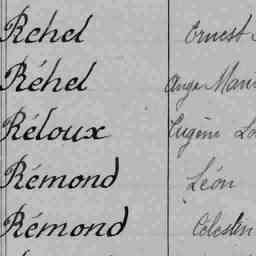 Rehel Ernest
Réhel Ange Marie
Réloux Eugène
Rémond Léon
Rémond Célestin